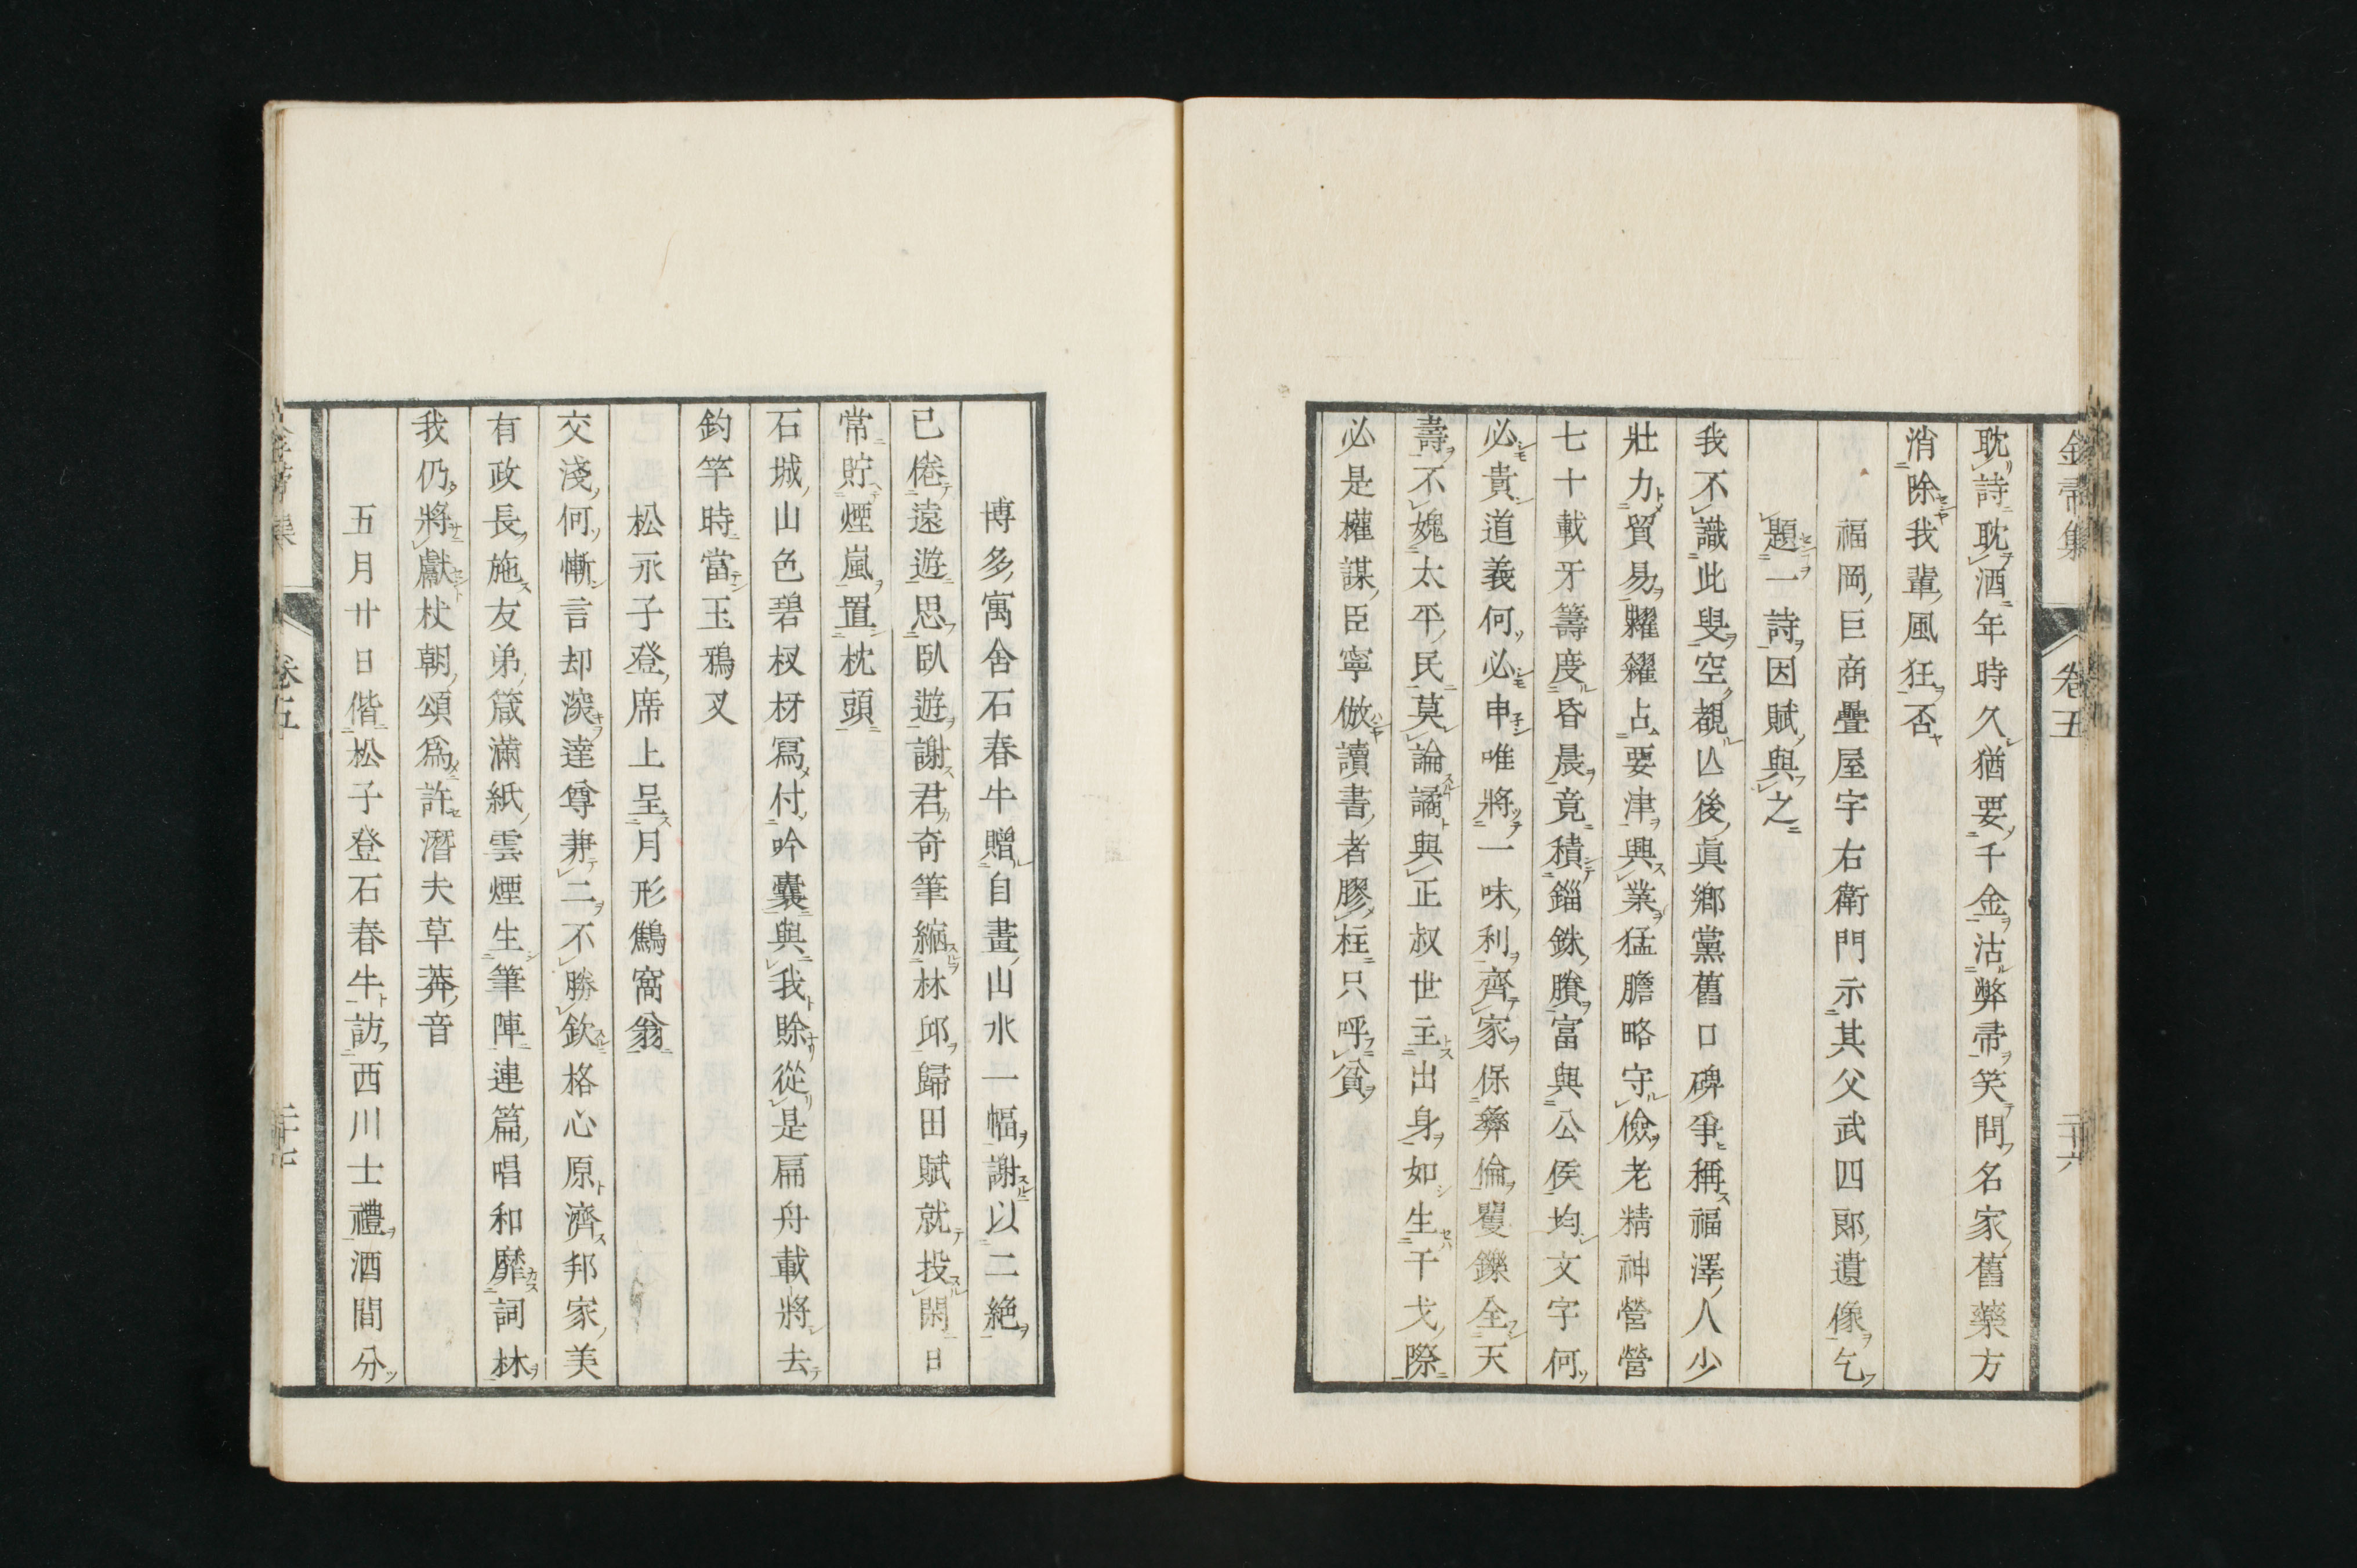 耽詩耽酒年時久猶要千金沽弊帚笑問名家舊藥方
消除我輩風狂否
福岡巨商疊屋宇右衛門示其父武四郎遺像乞
題一詩因賦與之
我不識此叟空覩亾後眞鄉黨舊口碑爭稱福澤人少
壯力貿易糶糴占要津興業猛膽略守儉老精神營營
七十載牙籌度昏晨竟積錙銖賸富與公侯均文字何
必貴道義何必申唯將一味利齊家保彝倫矍鑠全天
壽不媿太平民莫論譎與正叔世主出身如生干戈際
必是權謀臣寧倣讀書者膠柱只呼貧
博多寓舍石春牛贈自畫山水一幅謝以二絶
已倦遠遊思臥遊謝君奇筆縮林邱歸田賦就投閑日
常貯煙嵐置枕頭
石城山色碧杈枒寫付吟囊與我賒從是扁舟載將去
釣竿時當玉鴉叉
松永子登席上呈月形鷦窩翁
交淺何慚言却深達尊兼二不勝欽格心原濟邦家美
有政長施友弟箴滿紙雲煙生筆陣連篇唱和靡詞林
我仍將獻杖朝頌爲許潛夫草莽音
五月廿日偕松子登石春牛訪西川士禮酒間分